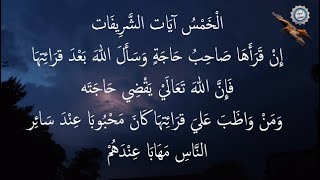 الْخَمْسُ آيَات الشَّرِيفَات
إِنْ قَرَأَهَا صَاحِبُ حَاجَةٍ وَسَأَلَ اللهَ بَعْدَ قِرَائِتِهَا
فَإِنَّ اللهَ تَعَالَيْ يَقْضِي حَاجَتَه
وَمَنْ وَاظَبَ عَلَيَ قِرَائِتِهَا كَانَ مَحْبُوبَا عِنْدَ سَائِر
النَّاسِ مَهَابَا عِنْدَهُمْ